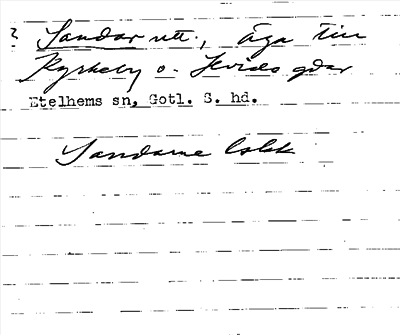 ? Sandar utt., äga till
Kyrkeby o. Hvideo gdar
Etelhems sn, Gotl. S. hd.
Sandarne